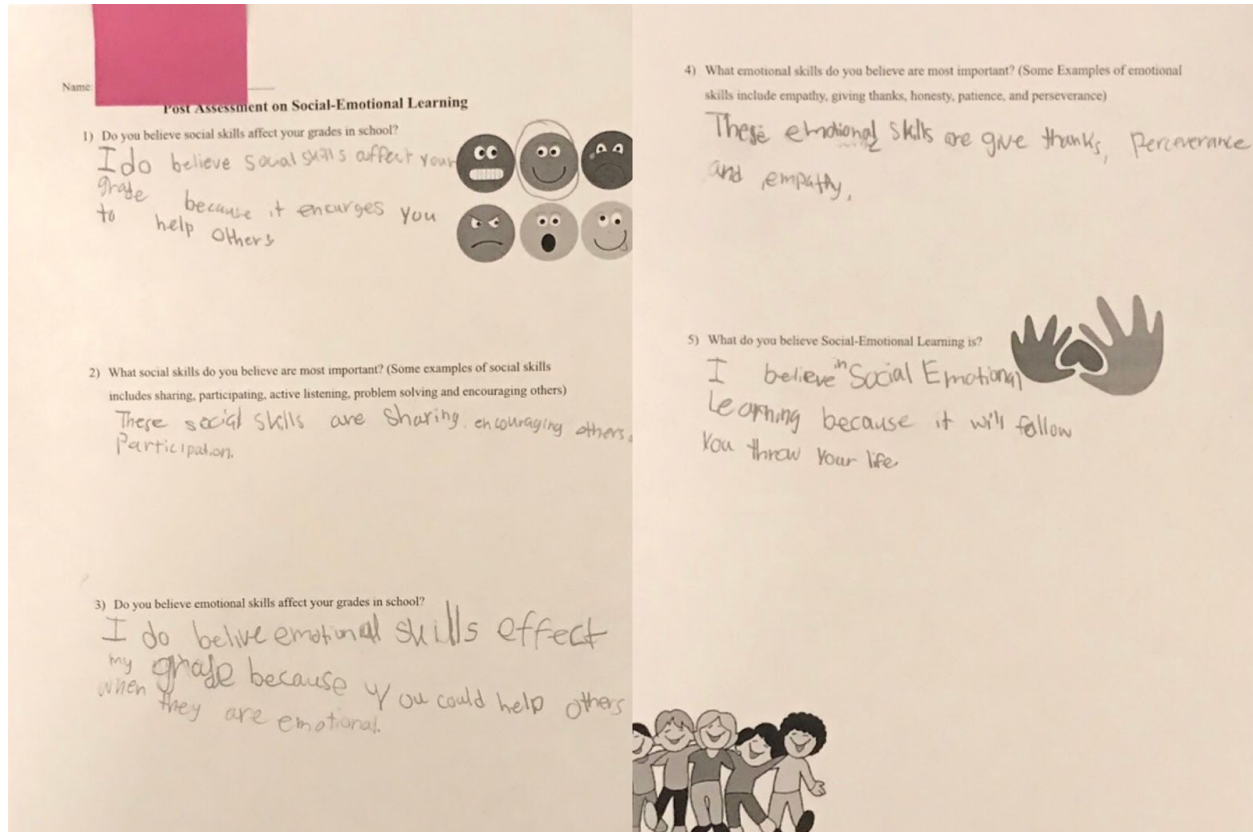 Name:
Post Assessment on Social-Emotional Learning
1) Do you believe social skills affect your grades in school?
I do believe social skills affect your
grade because it encurges you
to help others
2) What social skills do you believe are most important? (Some examples of social skills
includes sharing, participating, active listening, problem solving and encouraging others)
These social skills are Sharing, encouraging others,
Participation.
3) Do you believe emotional skills affect your grades in school?
I do belive emotional skills effect
my grade because you could help others
when they are emotional.
4) What emotional skills do you believe are most important? (Some Examples of emotional
skills include empathy, giving thanks, honesty, patience, and perseverance)
These emotional skills are give thanks, perceverance
and empathy,
5) What do you believe Social-Emotional Learning is?
I believe in Social Emotional
Learning because it will follow
You throw your life